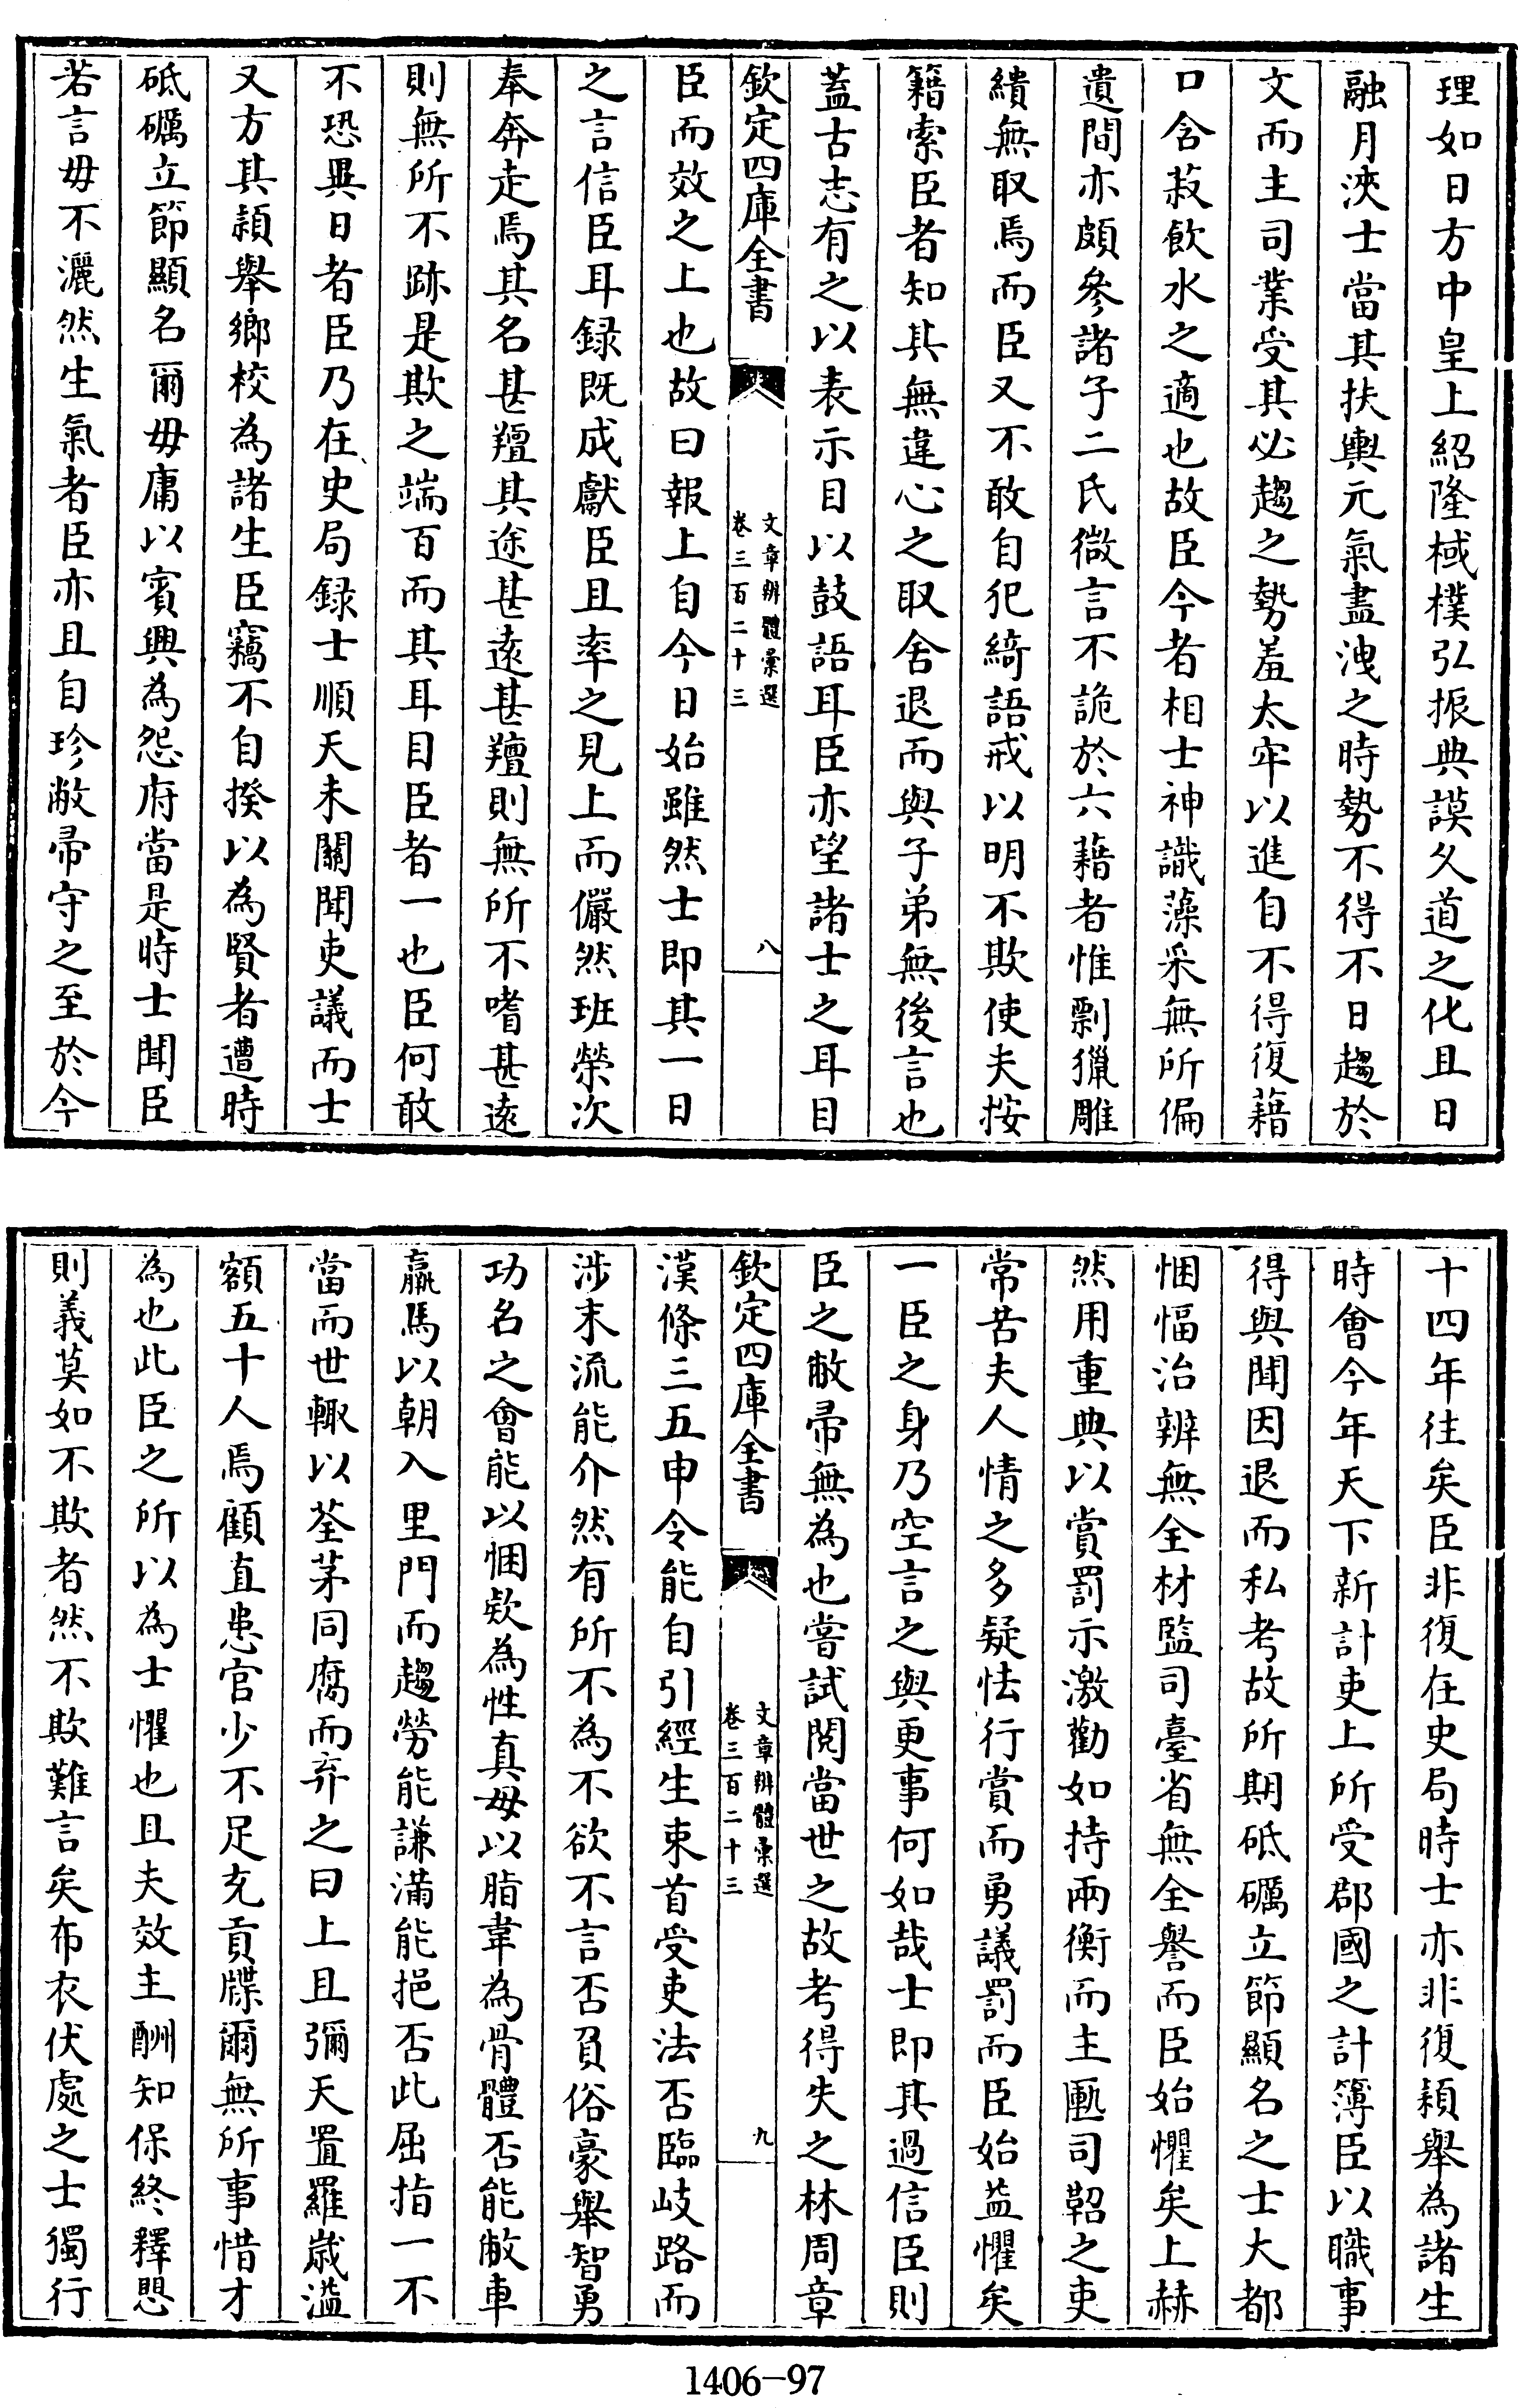 理如日方中皇上紹隆棫樸弘振典謨久道之化且日
融月浹士當其扶輿元氣盡洩之時勢不得不日趨於
文而主司業受其必趨之勢羞太牢以進自不得復藉
口含菽飲水之適也故臣今者相士神識藻采無所偏
遺間亦頗參諸子二氏微言不詭於六藉者惟剽獵雕
繢無取焉而臣又不敢自犯綺語戒以明不欺使夫按
籍索臣者知其無違心之取舍退而與子弟無後言也
蓋古志有之以表示目以鼓語耳臣亦望諸士之耳目
欽定四庫全書
文章辨體彙選
卷三百二十三
八
臣而效之上也故曰報上自今日始雖然士即其一日
之言信臣耳録既成獻臣且率之見上而儼然班榮次
奉奔走焉其名甚羶其途甚遠甚羶則無所不嗜甚遠
則無所不跡是欺之端百而其耳目臣者一也臣何敢
不恐異日者臣乃在史局録士順天未關聞吏議而士
又方其頴舉鄉校為諸生臣竊不自揆以為賢者遭時
砥礪立節顯名爾毋庸以賓興為怨府當是時士聞臣
若言毋不灑然生氣者臣亦且自珍敝帚守之至於今
十四年往矣臣非復在史局時士亦非復頴舉為諸生
時會今年天下新計吏上所受郡國之計簿臣以職事
得與聞因退而私考故所期砥礪立節顯名之士大都
悃愊治辨無全材監司臺省無全譽而臣始懼矣上赫
然用重典以賞罰示激勸如持兩衡而主匭司鞀之吏
常苦夫人情之多疑怯行賞而勇議罰而臣始益懼矣
一臣之身乃空言之與更事何如哉士即其過信臣則
臣之敝帚無為也嘗試閱當世之故考得失之林周章
欽定四庫全書
文章辨體彙選
卷三百二十三
九
漢條三五申令能自引經生束首受吏法否臨岐路而
涉末流能介然有所不為不欲不言否負俗豪舉智勇
功名之會能以悃欵為性真毋以脂韋為骨體否能敝車
羸馬以朝入里門而趨勞能謙滿能挹否此屈指一不
當而世輙以荃茅同腐而弃之曰上且彌天置羅歲溢
額五十人焉顧直患官少不足充貢牒爾無所事惜才
為也此臣之所以為士懼也且夫效主酬知保終釋愳
則義莫如不欺者然不欺難言矣布衣伏處之士獨行
1406-97